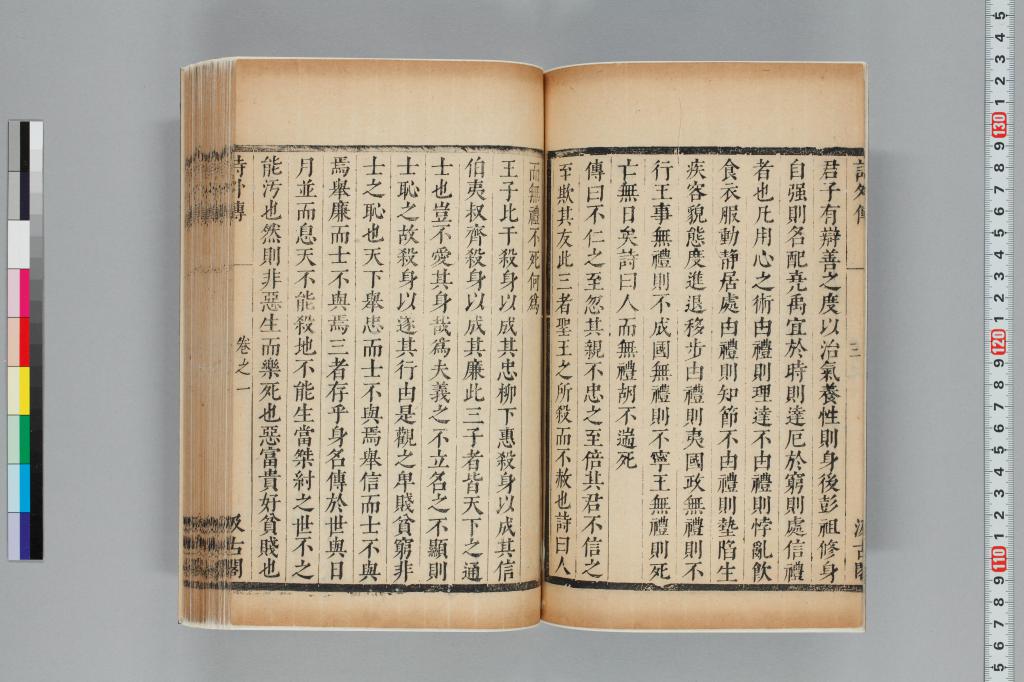 君子有辯善之度以治氣養性則身後彭祖修身
自强則名配堯禹宜於時則達厄於窮則處信禮
者也凡用心之術由禮則理達不由禮則悖亂飲
食衣服動靜居處由禮則知節不由禮則墊陷生
疾容貌態度進退移步由禮則夷國政無禮則不
行王事無禮則不成國無禮則不寧王無禮則死
亡無日矣詩曰人而無禮胡不遄死
傳曰不仁之至忽其親不忠之至倍其君不信之
至欺其友此三者聖王之所殺而不赦也詩曰人
而無禮不死何爲
王子比干殺身以成其忠柳下惠殺身以成其信
伯夷叔齊殺身以成其廉此三子者皆天下之通
士也豈不愛其身哉爲夫義之不立名之不顯則
士恥之故殺身以遂其行由是觀之卑賤貧窮非
士之恥也天下舉忠而士不與焉舉信而士不與
焉舉廉而士不與焉三者存乎身名傳於世與日
月並而息天不能殺地不能生當桀紂之世不之
能汚也然則非惡生而樂死也惡富貴好貧賤也
詩外傳
卷之一
汲古閣
5 4 3 2 1 130 9 8 7 6 5 4 3 2 1 120 9 8 7 6 5 4 3 2 1 110 9 8 7 6 5